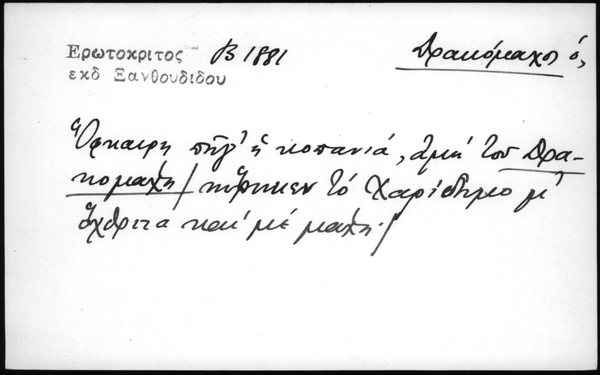 Ερωτοκριτος Β 1881
εκδ Ξανθουδιδου
Δρακόμαχος ὁ,
Εὔκαιρη πῆγ' ἡ κοπανιά, ἀμή τοῦ Δρα-
κομάχη / κτῆσεν τό Χαρίδημο μ'
ἔχθριτα καί μέ μάχη. /